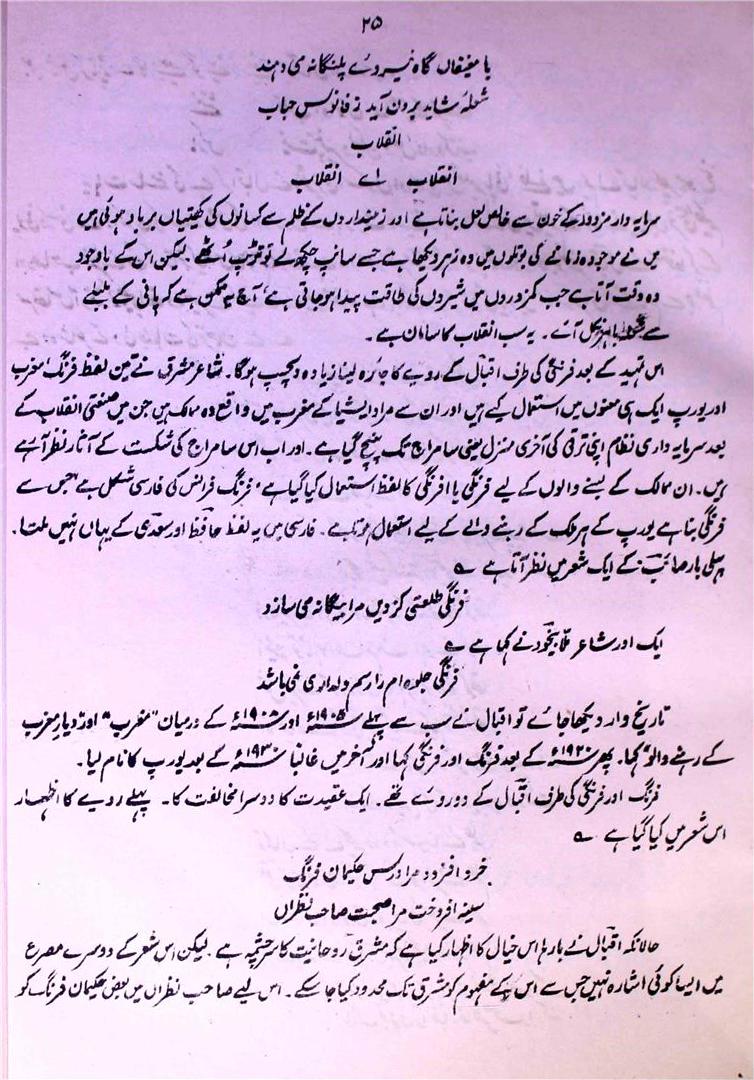 ۲۵
با ضعیفاں گاہ نیروے پلنگانہ می دہند
شعلۂ شاید برون آید ز فانوس حباب
انقلاب
انقلاب اے انقلاب
سرمایہ دار مزدور کے خون سے خالص لعل بناتا ہے اور زمینداروں کے ظلم سے کسانوں کی کھیتیاں برباد ہوئی ہیں
میں نے موجودہ زمانے کی بوتلوں میں وہ زہر دیکھا ہے جسے سانپ چکھ لے تو تڑپ اُٹھے۔ لیکن اس کے باوجود
وہ وقت آتا ہے جب کمزوروں میں شیروں کی طاقت پیدا ہو جاتی ہے‘ آج یہ ممکن ہے کہ پانی کے بلبلے
سے شعلہ باہر نکل آئے۔ یہ سب انقلاب کا سامان ہے۔
اس تمہید کے بعد فرنگی کی طرف اقبال کے رویے کا جائزہ لینا زیادہ دلچسپ ہوگا۔ شاعر مشرق نے تین لفظ فرنگ‘ مغرب
اور یورپ ایک ہی معنوں میں استعمال کیے ہیں اور ان سے مراد ایشیا کے مغرب میں واقع وہ ممالک ہیں جن میں صنعتی انقلاب کے
بعد سرمایہ داری نظام اپنی ترقی کی آخری منزل یعنی سامراج تک پہنچ گیا ہے۔ اور اب اس سامراج کی شکست کے آثار نظر آ رہے
ہیں۔ ان ممالک کے بسنے والوں کے لیے فرنگی یا افرنگی کا لفظ استعمال کیا گیا ہے‘ فرنگ فرانس کی فارسی شکل ہے‘ جس سے
فرنگی بنا ہے یورپ کے ہر ملک کے رہنے والے کے لیے استعمال ہوتا ہے۔ فارسی میں یہ لفظ حافظ اور سعدی کے یہاں نہیں ملتا۔
پہلی بار صائب کے ایک شعر میں نظر آتا ہے ؎
فرنگی طلعتی کز دیں مرا بیگانہ می سازد
ایک اور شاعر ملا بیخود نے کہا ہے ؎
فرنگی جلوہ ام را رسم دلداری نمی باشد
تاریخ وار دیکھا جائے تو اقبال نے سب سے پہلے ۱۹۰۵ء اور ۱۹۰۸ء کے درمیان "مغرب" اور "دیارِ مغرب
کے رہنے والو" کہا۔ پھر ۱۹۲۰ء کے بعد فرنگ اور فرنگی کہا اور آخر میں غالباً ۱۹۳۰ء کے بعد یورپ کا نام لیا۔
فرنگ اور فرنگی کی طرف اقبال کے دو رویے تھے۔ ایک عقیدت کا دوسرا مخالفت کا۔ پہلے رویے کا اظہار
اس شعر میں کیا گیا ہے ؎
خرد افزود مرا درس حکیمان فرنگ
سینہ افروخت مرا صحبت صاحب نظراں
حالانکہ اقبال نے بارہا اس خیال کا اظہار کیا ہے کہ مشرق روحانیت کا سرچشمہ ہے۔ لیکن اس شعر کے دوسرے مصرع
میں ایسا کوئی اشارہ نہیں جس سے اس کے مفہوم کو مشرق تک محدود کیا جا سکے۔ اس لیے صاحب نظراں میں بعض حکیمان فرنگ کو